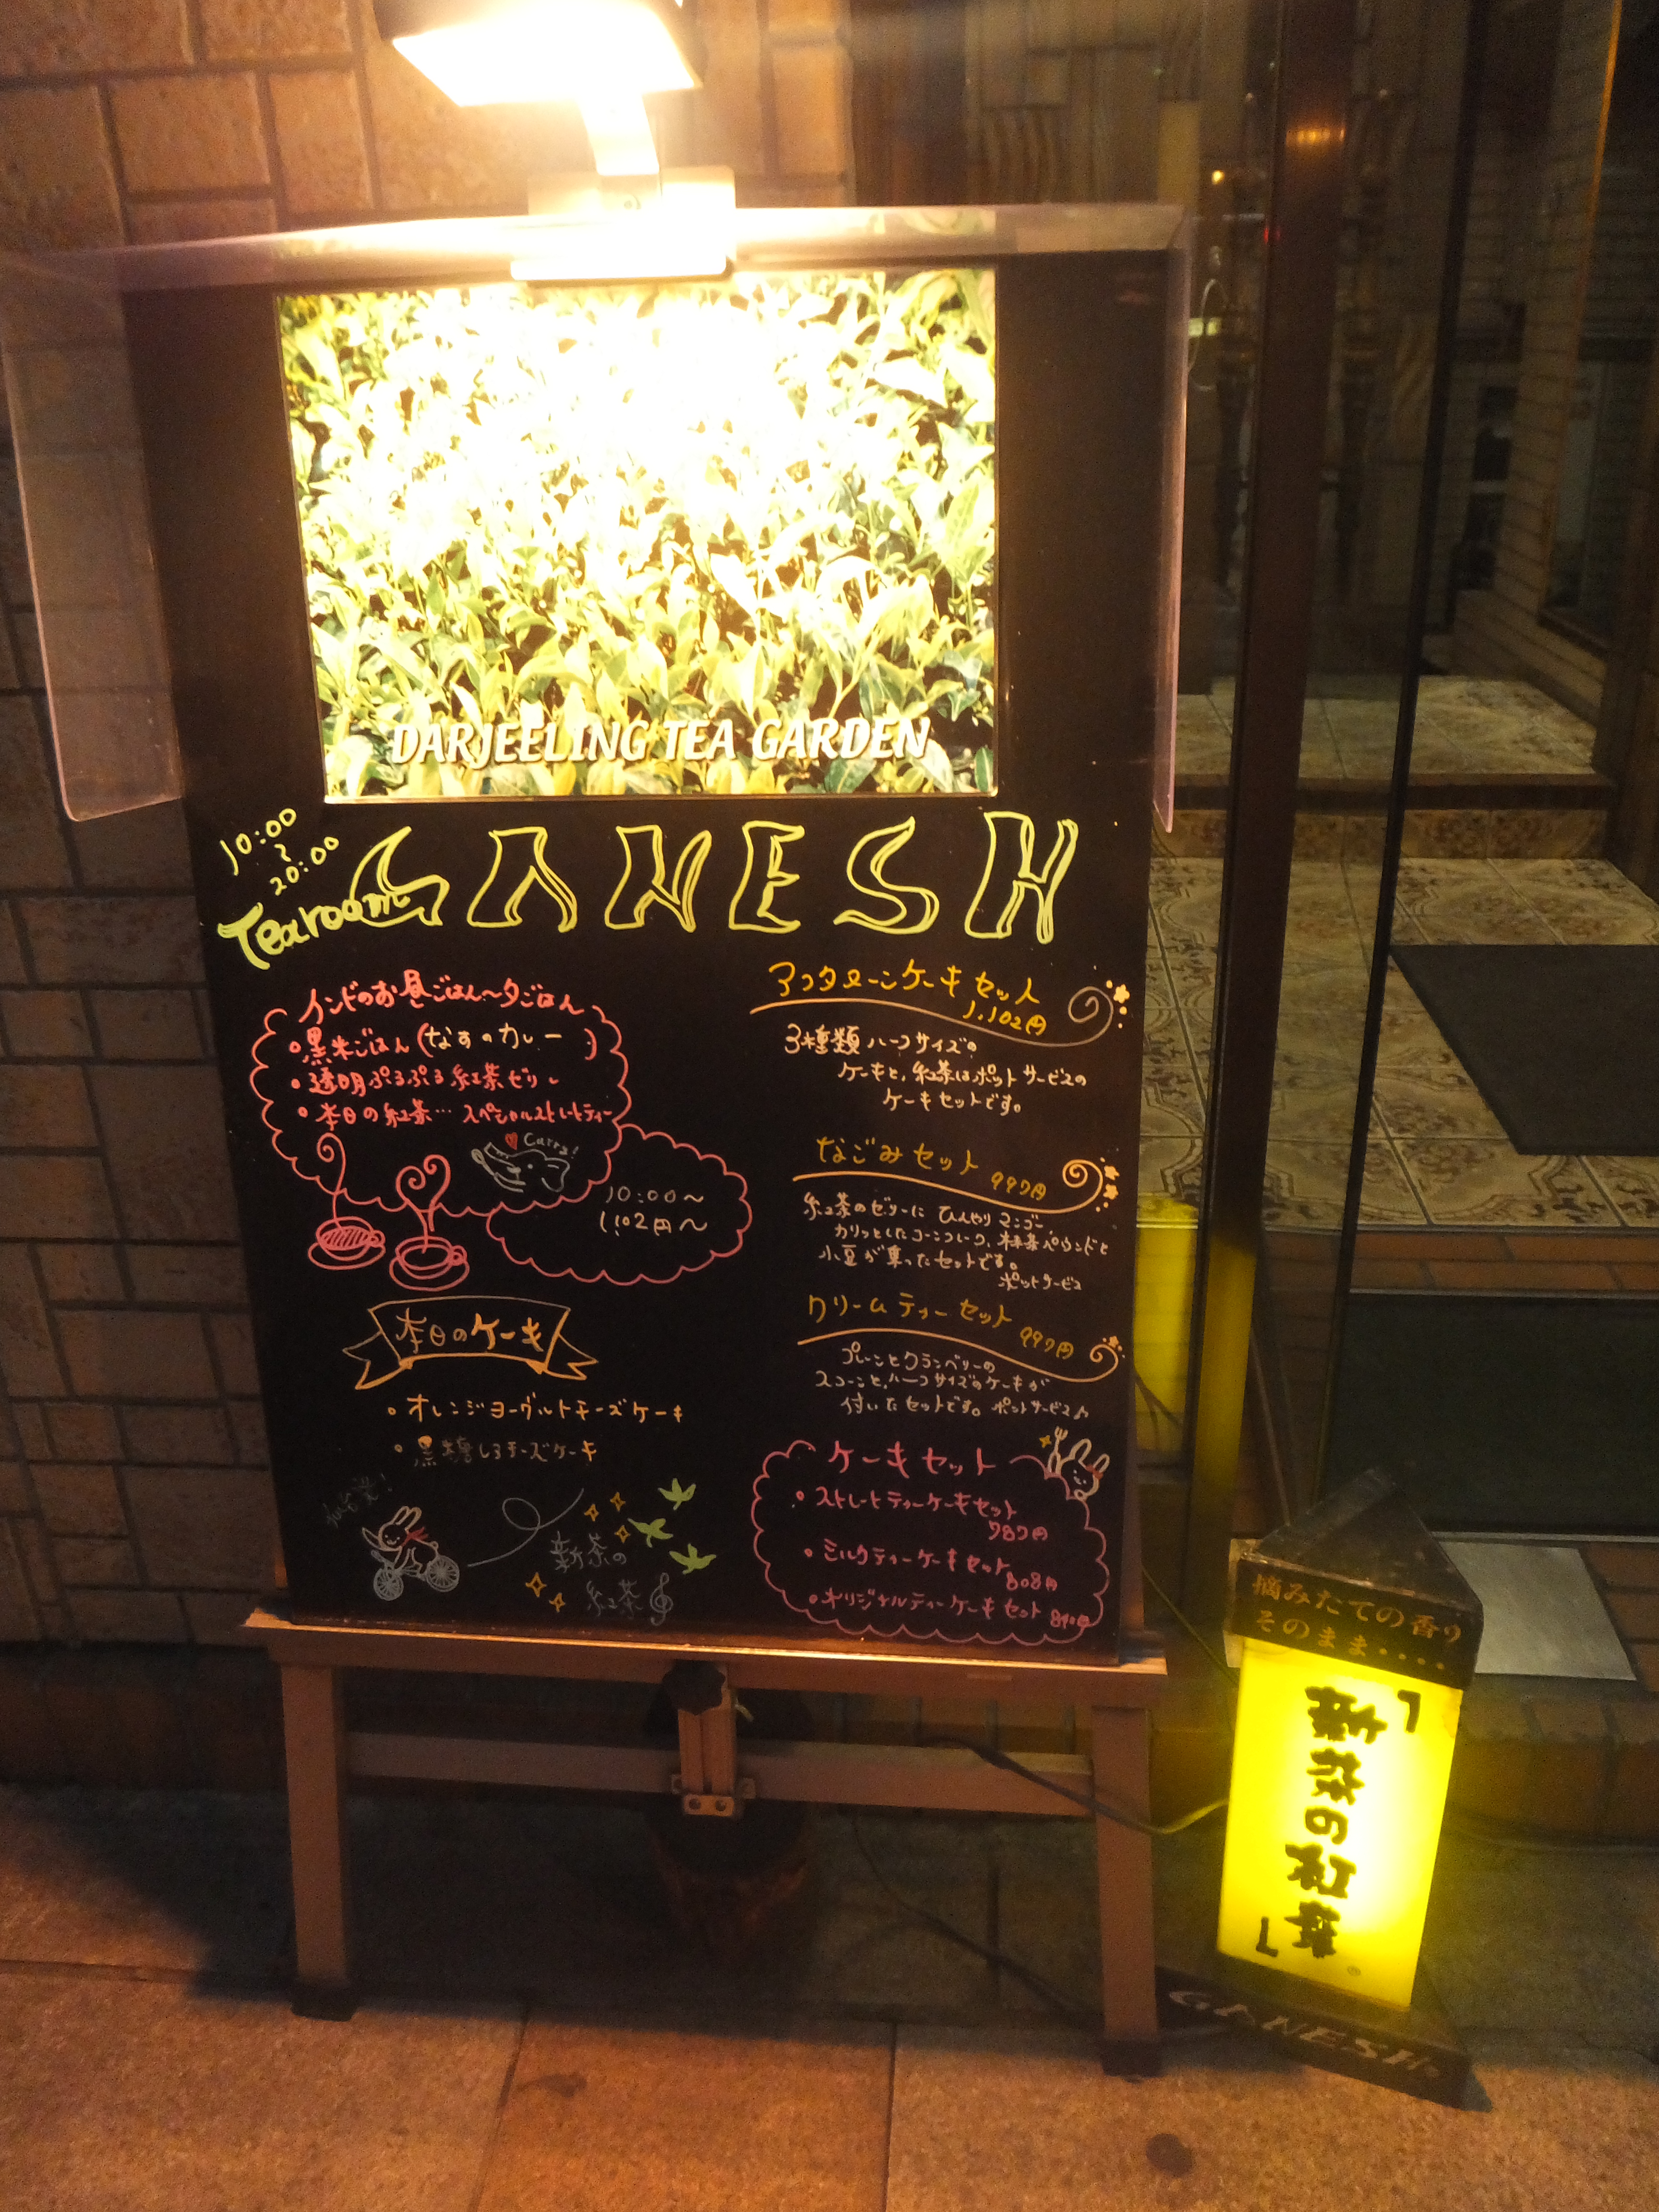 DARJEELING TEA GARDEN
10:00
〜
20:00
Tearoom GANESH
インドのお昼ごはん〜夕ごはん
・黒米ごはん(なすのカレー)
・透明ぷるぷる紅茶ゼリー
・本日の紅茶… スペシャルストレートティー
Curry!
10:00〜
1,102円〜
本日のケーキ
・オレンジヨーグルトチーズケーキ
・黒糖しょうチーズケーキ
新茶の
紅茶
アフタヌーンケーキセット
1,102円
3種類ハーフサイズの
ケーキと、紅茶はポットサービスの
ケーキセットです。
なごみセット 997円
紅茶のゼリーに ひんやりマンゴー、
カリッとしたコーンフレーク、抹茶パウンドと
小豆が乗ったセットです。
ポットサービス
クリームティーセット 997円
プレーンとクランベリーの
スコーンと、ハーフサイズのケーキが
付いたセットです。ポットサービス♪
ケーキセット
・ストレートティーケーキセット
787円
・ミルクティーケーキセット 808円
・オリジナルティーケーキセット
摘みたての香り
そのまま‥‥
「新茶の紅茶」
GANESH